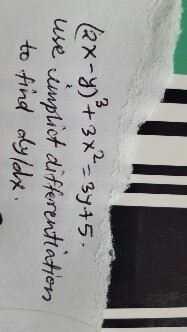 (2x-y)³ + 3x² = 3y+5.
use implict differentiation
to find dy/dx.